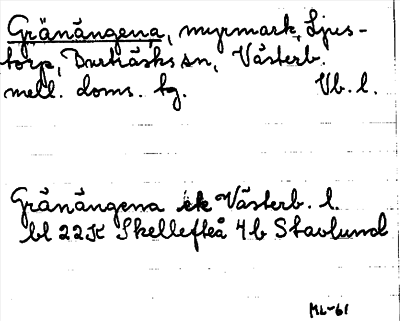 Gränängena, myrmark, Ljus-
torp, Burträsks sn, Västerb.
mell. doms. tg. Vb. l.
Gränängena ek Västerb. l.
bl 22K Skellefteå 4b Stavlund
ML-61